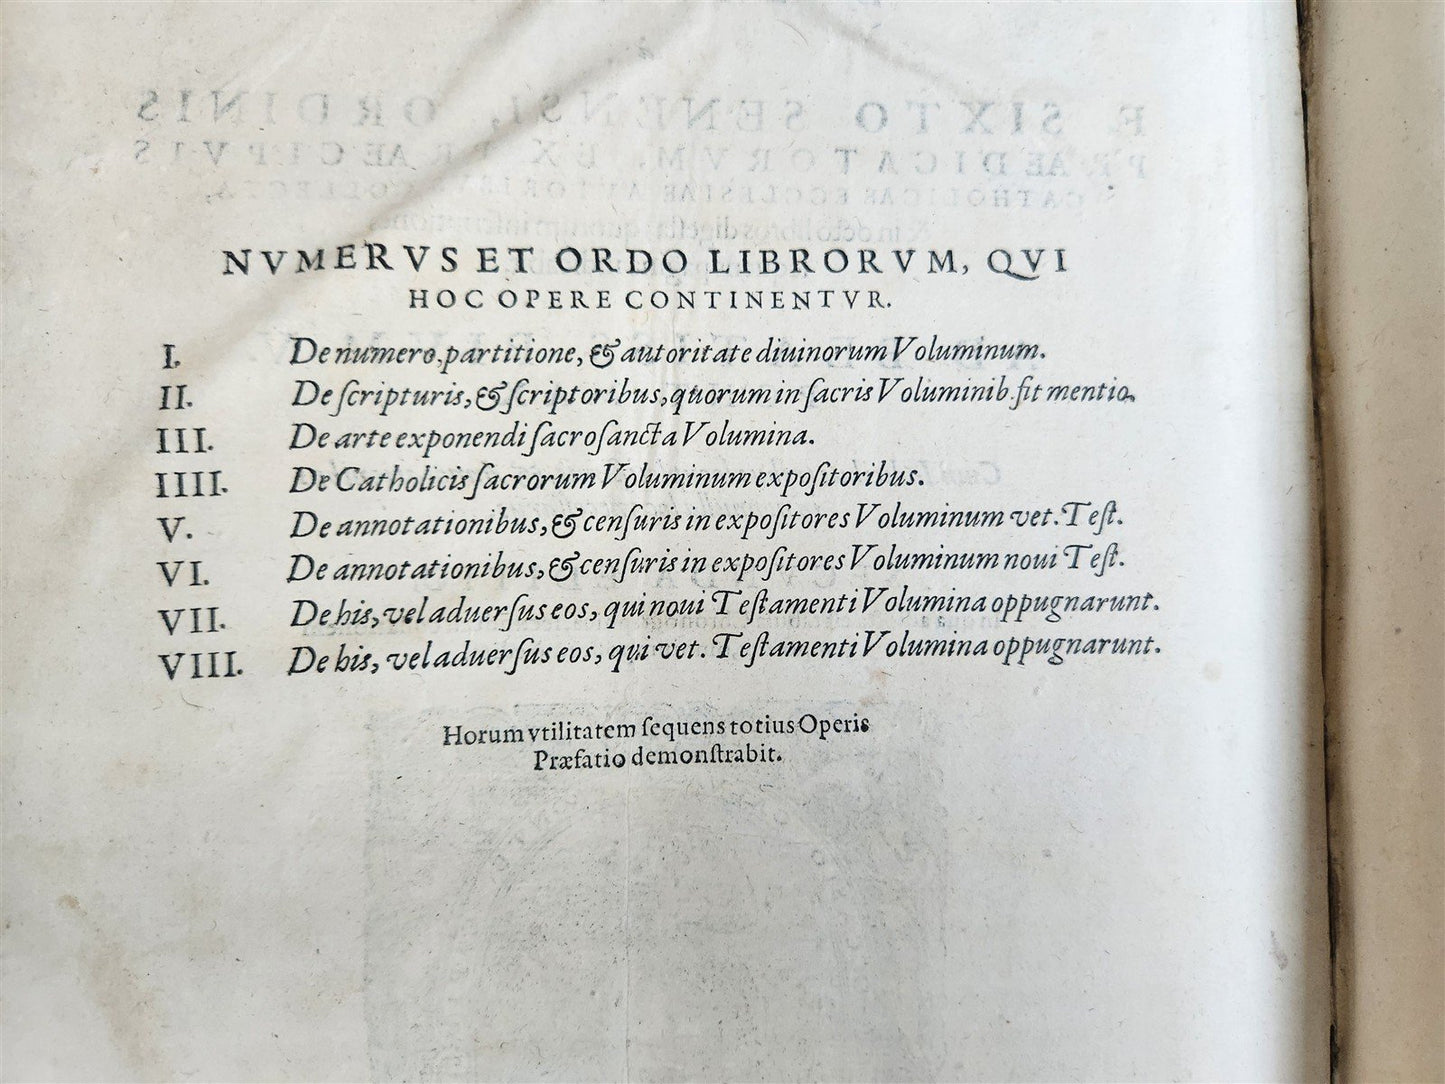 NVMERVS ET ORDO LIBRORVM, QVI
HOC OPERE CONTINENTVR.
I. De numero, partitione, & autoritate diuinorum Voluminum.
II. De ſcripturis, & ſcriptoribus, quorum in ſacris Voluminib. fit mentio.
III. De arte exponendi ſacroſancta Volumina.
IIII. De Catholicis ſacrorum Voluminum expoſitoribus.
V. De annotationibus, & cenſuris in expoſitores Voluminum vet. Teſt.
VI. De annotationibus, & cenſuris in expoſitores Voluminum noui Teſt.
VII. De his, vel aduerſus eos, qui noui Teſtamenti Volumina oppugnarunt.
VIII. De his, vel aduerſus eos, qui vet. Teſtamenti Volumina oppugnarunt.
Horum vtilitatem ſequens totius Operis
Præfatio demonſtrabit.